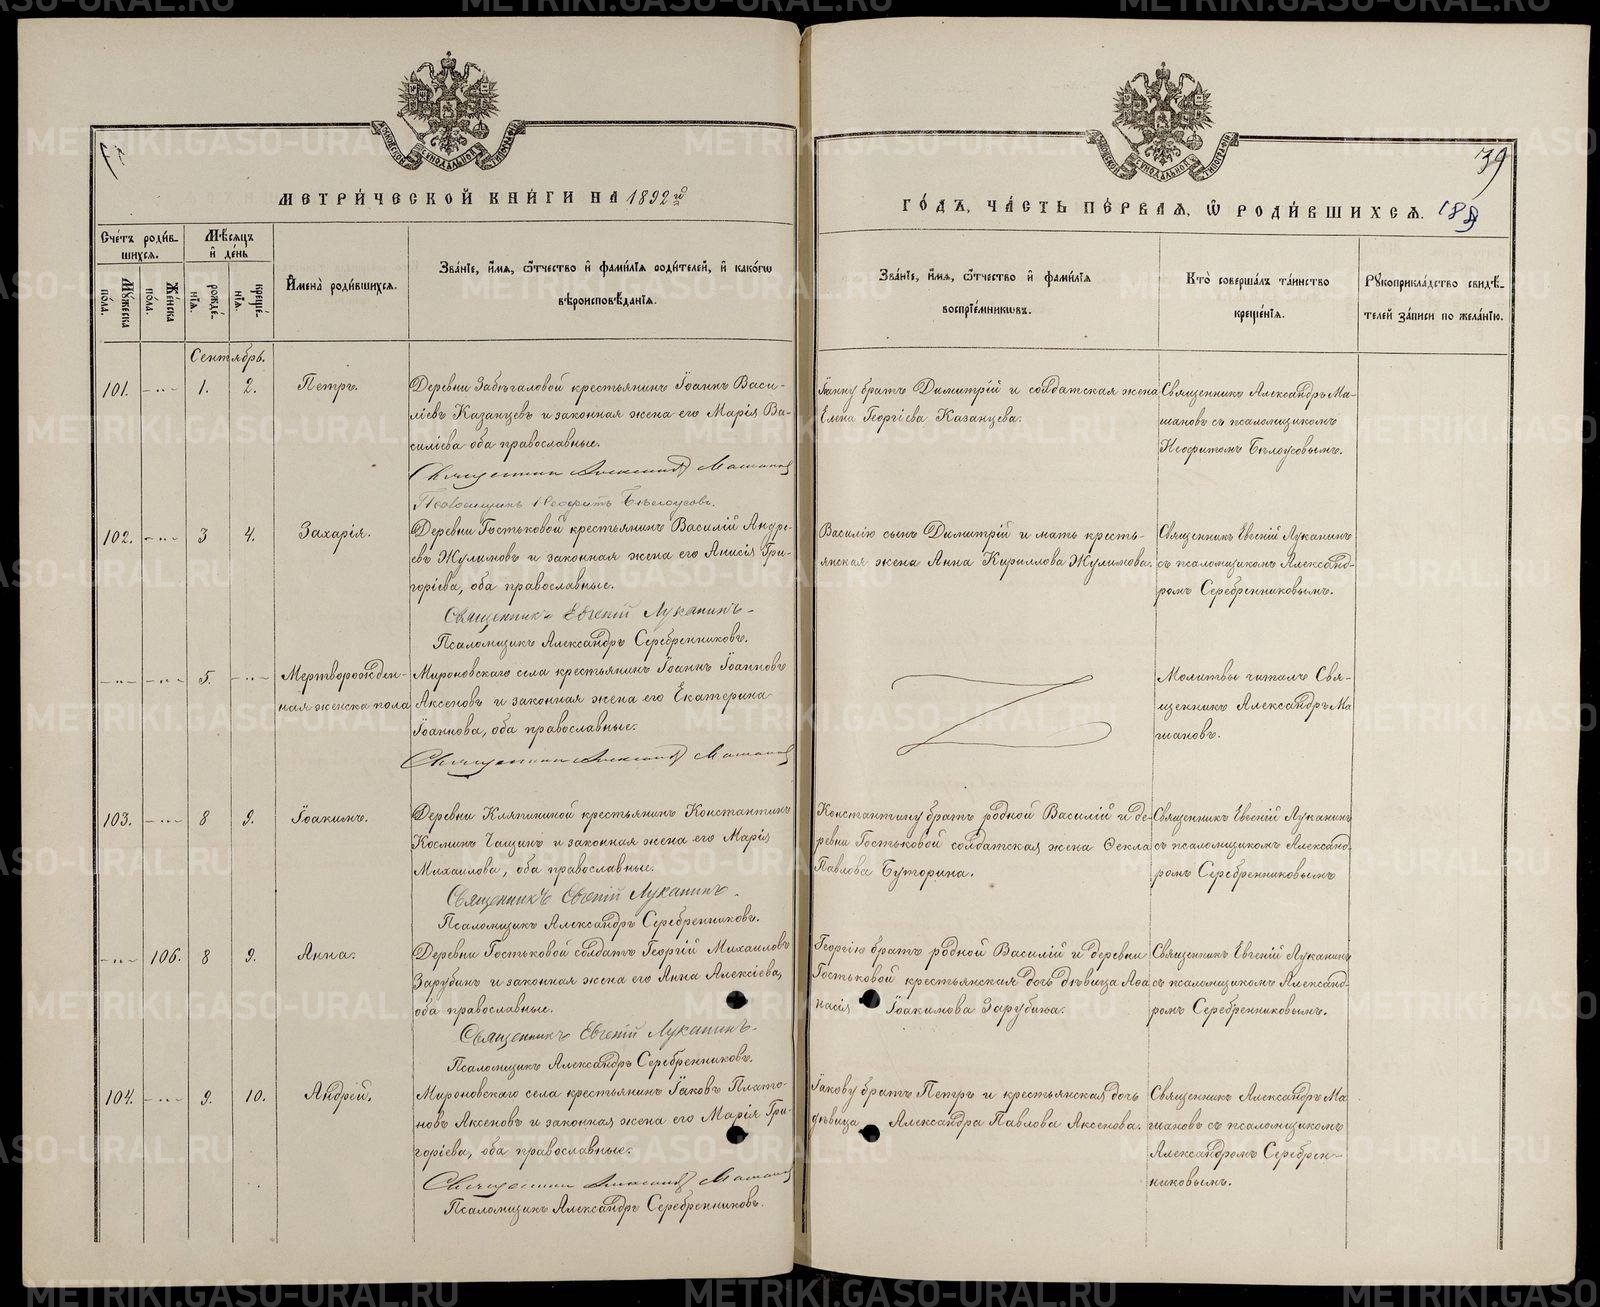 МЕТРИ́ЧЕСКОЙ КНИ́ГИ НА 1892й
Счетъ роди́в-
шихся.
Мѣ́сяцъ
и҆ де́нь
Му́жеска по́ла.
Же́нска по́ла.
рожде́-нїя.
креще́-нїя.
И҆мена̀ роди́вшихся.
Зва́нїе, и҆́мя, ѻ҆́тчество и҆ фами́лїя роди́телей, и҆ како́гѡ
вѣроисповѣ́данїя.
Сентябрь.
101. -"- 1. 2. Петръ.
Деревни Забѣгаловой крестьянинъ Іоаннъ Васи-
ліевъ Казанцевъ и законная жена его Марія Ва-
силіева оба православные.
Священникъ Александръ Машановъ
Псаломщикъ Неофитъ Бѣлоусовъ.
102. -"- 3 4. Захарія.
Деревни Гостьковой крестьянинъ Василій Андре-
евъ Жулимовъ и законная жена его Анисія Гри-
горіева, оба православные.
Священникъ Евгеній Луканинъ.
Псаломщикъ Александръ Серебренниковъ.
-"- -"- 5. -"- Мертворожден-
ная женска пола
Мироновскаго села крестьянинъ Іоаннъ Іоанновъ
Аксеновъ и законная жена его Екатерина
Іоаннова, оба православные.
Священникъ Александръ Машановъ
103. -"- 8 9. Іоакимъ.
Деревни Кляпининой крестьянинъ Константинъ
Косминъ Чащинъ и законная жена его Марія
Михаилова, оба православные.
Священникъ Евгеній Луканинъ.
Псаломщикъ Александръ Серебренниковъ.
-"- 106. 8 9. Анна.
Деревни Гостьковой солдатъ Георгій Михаиловъ
Зарубинъ и законная жена его Анна Алексіева,
оба православные.
Священникъ Евгеній Луканинъ.
Псаломщикъ Александръ Серебренниковъ.
104. -"- 9. 10. Андрей.
Мироновскаго села крестьянинъ Іаковъ Плато-
новъ Аксеновъ и законная жена его Марія Гри-
горіева, оба православные.
Священникъ Александръ Машановъ
Псаломщикъ Александръ Серебренниковъ.
39
ГО́ДЪ, ЧА́СТЬ ПЕ́РВАЯ, Ѡ҆ РОДИ́ВШИХСЯ. 189
Зва́нїе, и҆́мя, ѻ҆́тчество и҆ фами́лїя
воспрїе́мникѡвъ.
Кто̀ соверша́лъ та́инство
креще́нїя.
Рꙋкоприкла́дство свидѣ́-
телей за́писи по жела́нїю.
Іоанну братъ Димитрій и солдатская жена
Елена Георгіева Казанцева.
Священникъ Александръ Ма-
шановъ съ псаломщикомъ
Неофитомъ Бѣлоусовымъ.
Василію сынъ Димитрій и мать кресть-
янская жена Анна Кириллова Жулимова.
Священникъ Евгеній Луканинъ
съ псаломщикомъ Александ-
ромъ Серебренниковымъ.
Молитвы читалъ Свя-
щенникъ Александръ Ма-
шановъ.
Константину братъ родной Василій и де-
ревни Гостьковой солдатская жена Ѳекла
Павлова Буторина.
Священникъ Евгеній Луканинъ
съ псаломщикомъ Александ-
ромъ Серебренниковымъ
Георгію братъ родной Василій и деревни
Гостьковой крестьянская дочь дѣвица Аѳа-
насія Іоакимова Зарубина.
Священникъ Евгеній Луканинъ
съ псаломщикомъ Александ-
ромъ Серебренниковымъ.
Іакову братъ Петръ и крестьянская дочь
дѣвица Александра Павлова Аксенова.
Священникъ Александръ Ма-
шановъ съ псаломщикомъ
Александромъ Серебрен-
никовымъ.
METRIKI.GASO-URAL.RU